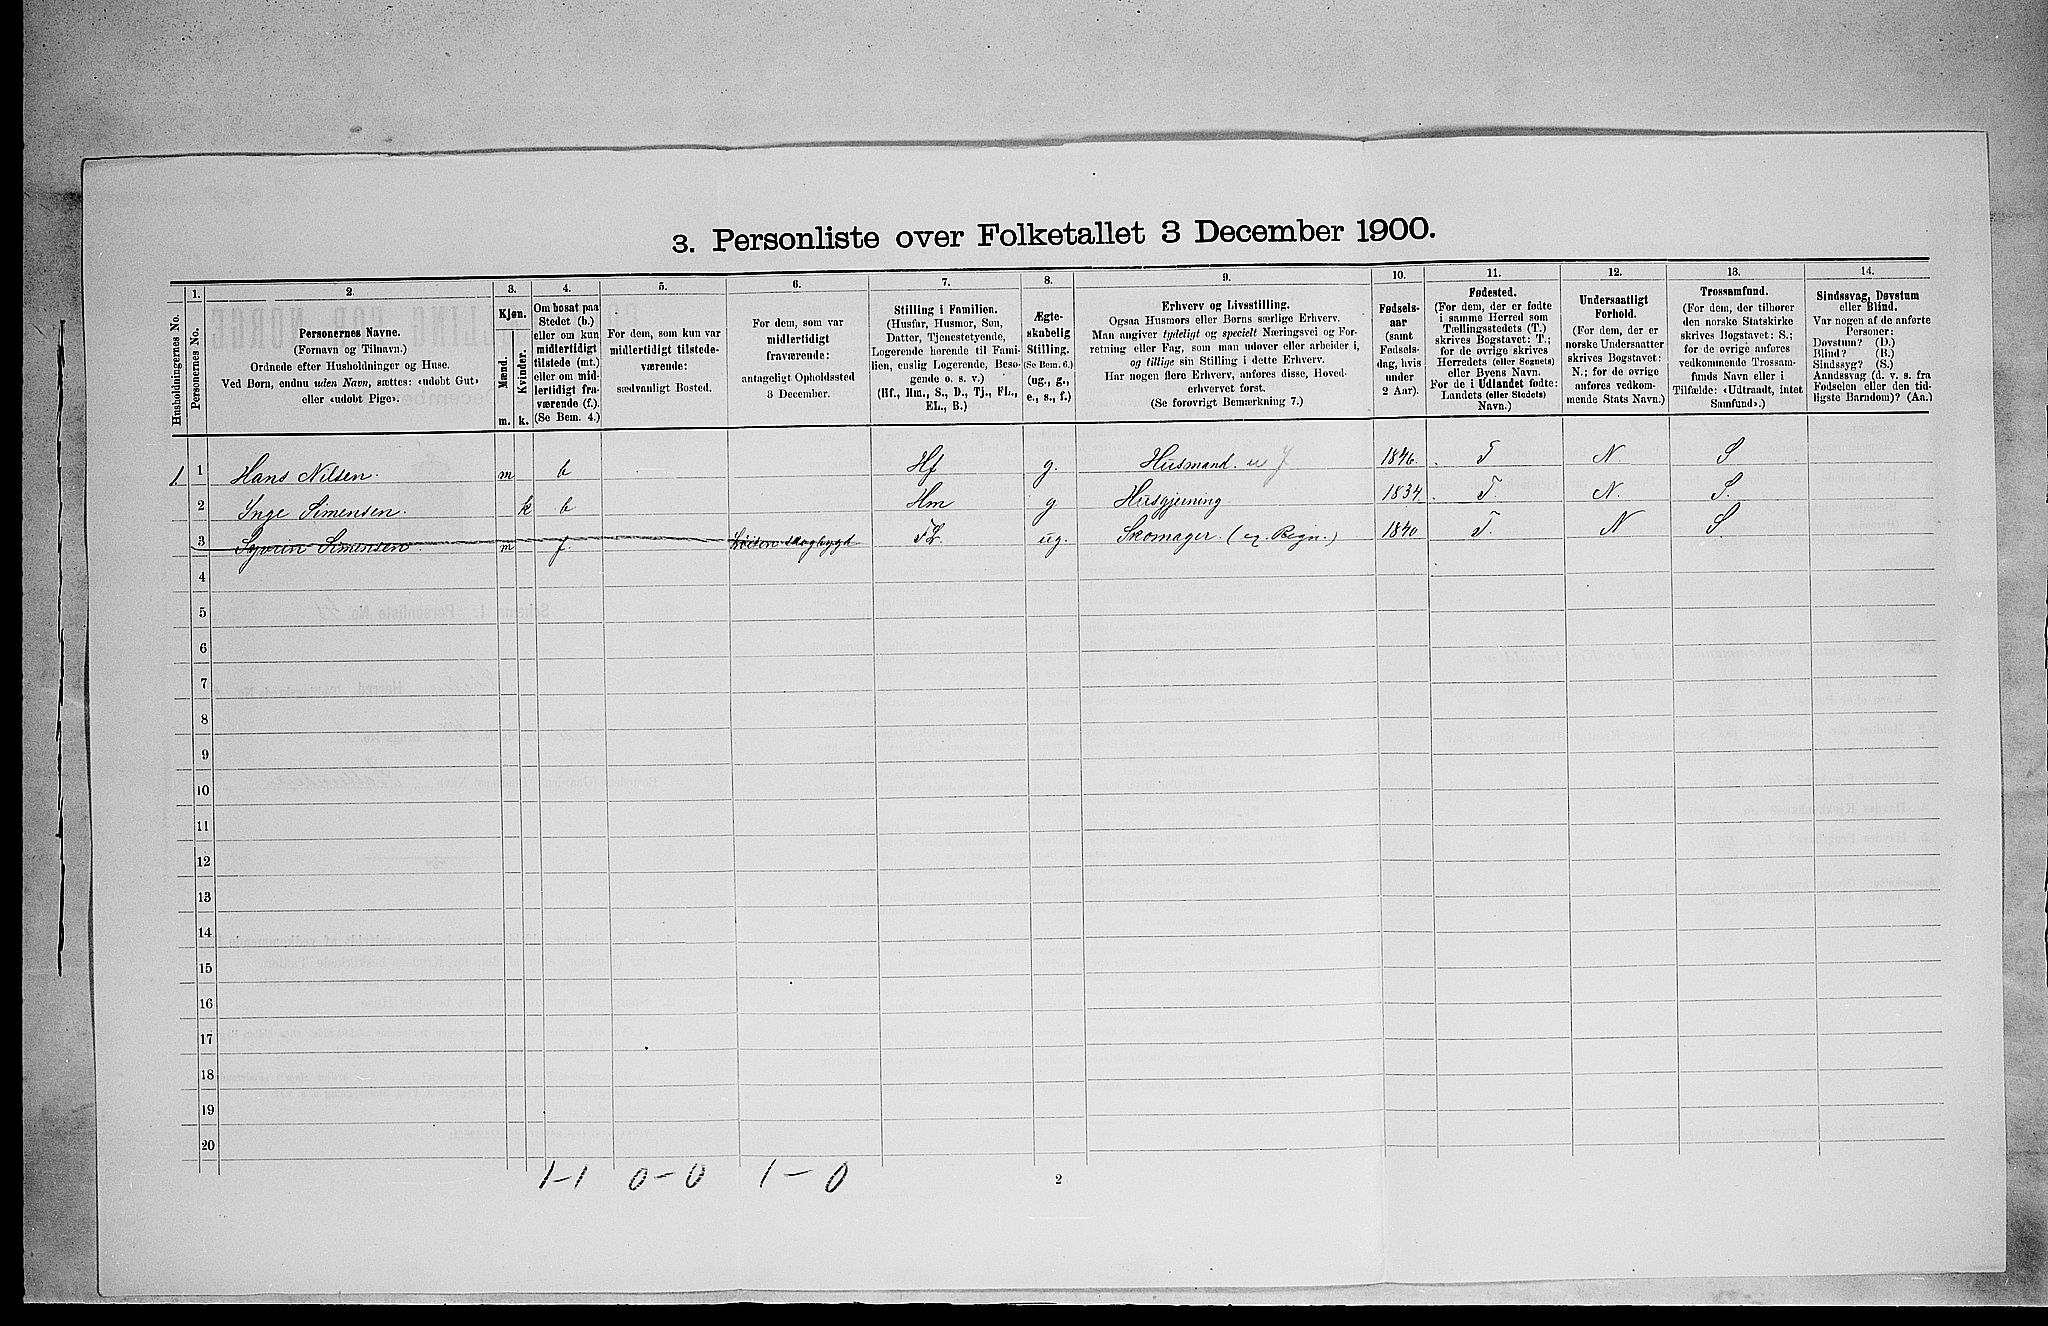 3. Personliste over Folketallet 3 December 1900.
Husholdningernes No.
1.
Personernes No.
2.
Personernes Navne.
(Fornavn og Tilnavn.)
Ordnede efter Husholdninger og Huse.
Ved Børn, endnu uden Navn, sættes: «udøbt Gut»
eller «udøbt Pige».
3.
Kjøn.
Mænd.
Kvinder.
m. k.
4.
Om bosat paa
Stedet (b.)
eller om kun
midlertidigt
tilstede (mt.)
eller om mid-
lertidigt fra-
værende (f.).
(Se Bem. 4.)
5.
For dem, som kun var
midlertidigt tilstede-
værende:
sædvanligt Bosted.
6.
For dem, som var
midlertidigt
fraværende:
antageligt Opholdssted
3 December.
7.
Stilling i Familien.
(Husfar, Husmor, Søn,
Datter, Tjenestetyende,
Logerende hørende til Fami-
lien, enslig Logerende, Besø-
gende o. s. v.)
(Hf., Hm., S., D., Tj., FL.,
EL., B.)
8.
Ægte-
skabelig
Stilling.
(Se Bem. 6.)
(ug., g.,
e., s., f.)
9.
Erhverv og Livsstilling.
Ogsaa Husmors eller Børns særlige Erhverv.
Man angiver tydeligt og specielt Næringsvei og For-
retning eller Fag, som man udøver eller arbeider i,
og tillige sin Stilling i dette Erhverv.
Har nogen flere Erhverv, anføres disse, Hoved-
erhvervet først.
(Se forøvrigt Bemærkning 7.)
10.
Fødsels-
aar
(samt
Fødsels-
dag, hvis
under
2 Aar).
11.
Fødested.
(For dem, der er fødte
i samme Herred som
Tællingsstedets (T.)
skrives Bogstavet: T.;
for de øvrige skrives
Herredets (eller Sognets)
eller Byens Navn.
For de i Udlandet fødte:
Landets (eller Stedets)
Navn.)
12.
Undersaatligt
Forhold.
(For dem, der er
norske Undersaatter
skrives Bogstavet:
N.; for de øvrige
anføres vedkom-
mende Stats Navn.)
13.
Trossamfund.
(For dem, der tilhører
den norske Statskirke
skrives Bogstavet: S.;
for de øvrige anføres
vedkommende Trossam-
funds Navn eller i
Tilfælde: «Udtraadt, intet
Samfund».)
14.
Sindssvag, Døvstum
eller Blind.
Var nogen af de anførte
Personer:
Døvstum? (D.)
Blind? (B.)
Sindssyg? (S.)
Aandssvag (d. v. s. fra
Fødselen eller den tid-
ligste Barndom)? (Aa.)
1 1 Hans Nilsen. m b Hf g. Husmand. u J 1846. T N S
2 Inge Simensen. k b Hm g Husgjerning 1834. T. N. S.
3 Syver Simensen m f. skogbygd FL ug. Skomager. (eg. Regn.) 1840 T. N S.
4
5
6
7
8
9
10
11
12
13
14
15
16
17
18
19
20
1-1 0-0 1-0
2